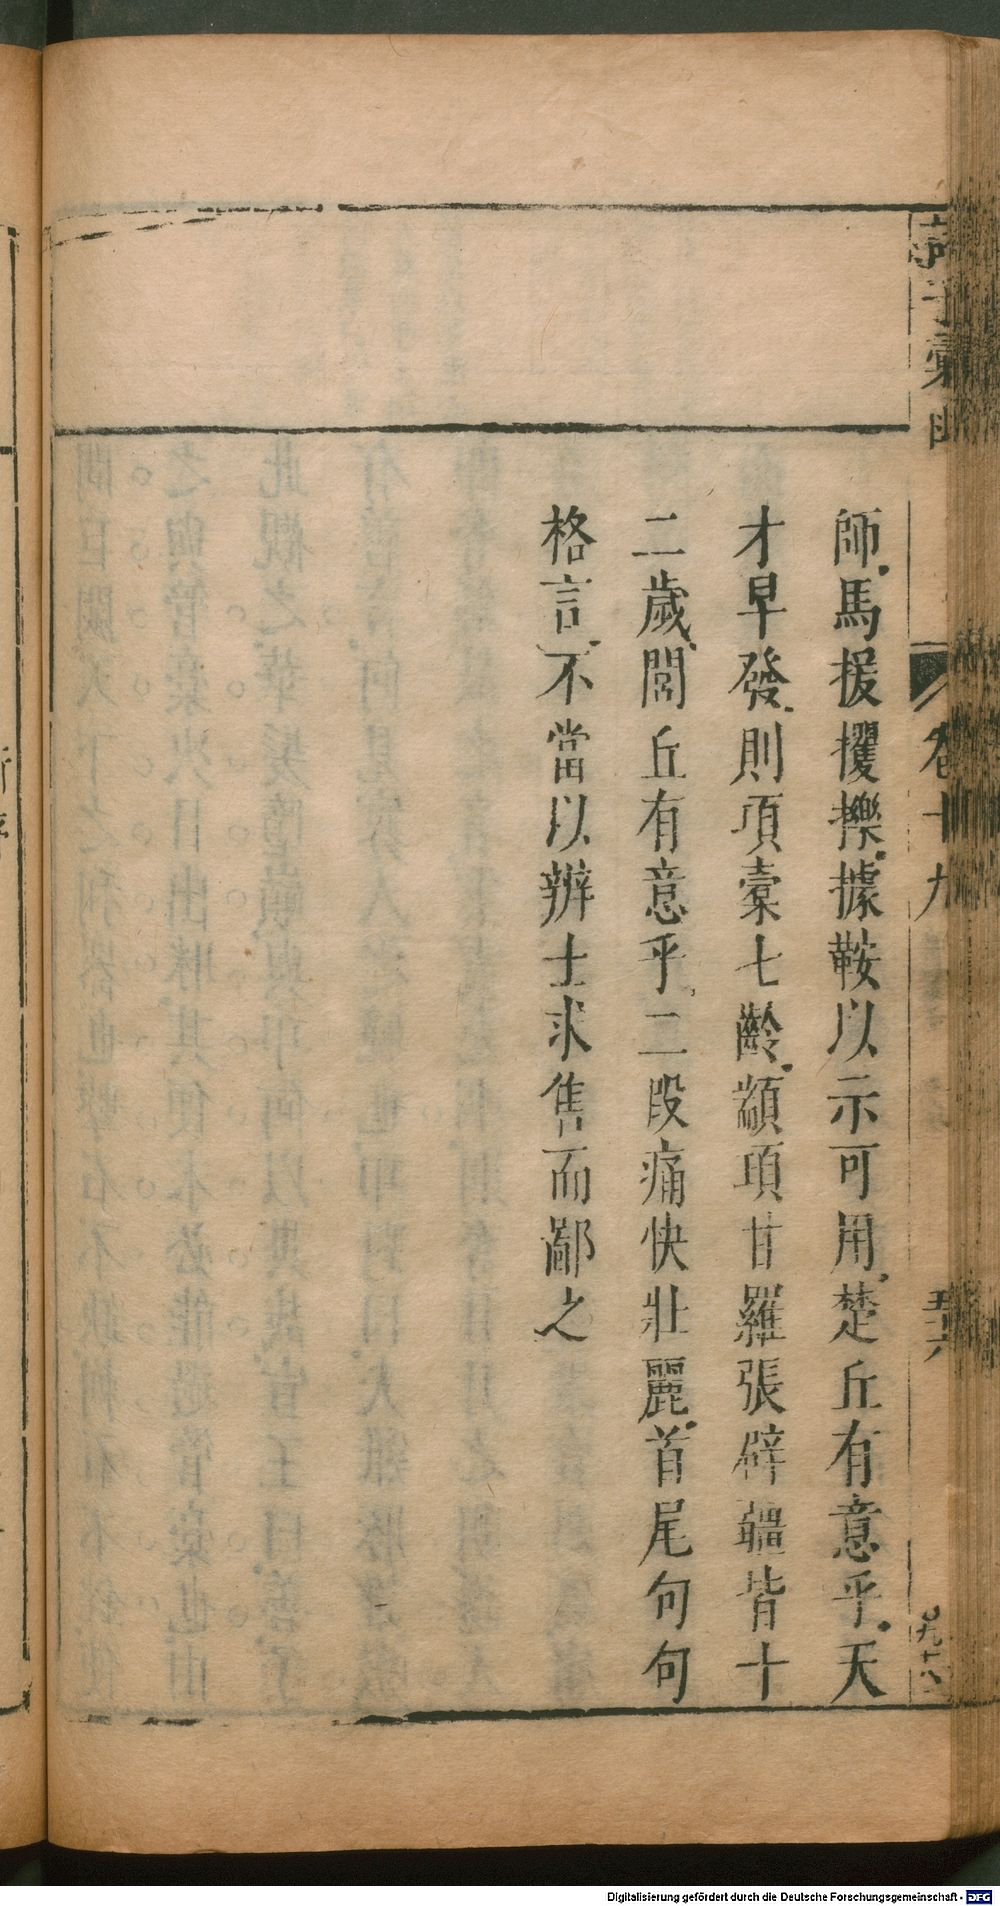 師馬援攫擽據鞍以示可用楚丘有意乎天
才早發則項橐七齡顓項甘羅張辟疆皆十
二歲閭丘有意乎二段痛快壯麗首尾句句
格言不當以辨士求售而鄙之
諸子彙函
卷十九
五十六
Digitalisierung gefördert durch die Deutsche Forschungsgemeinschaft - DFG